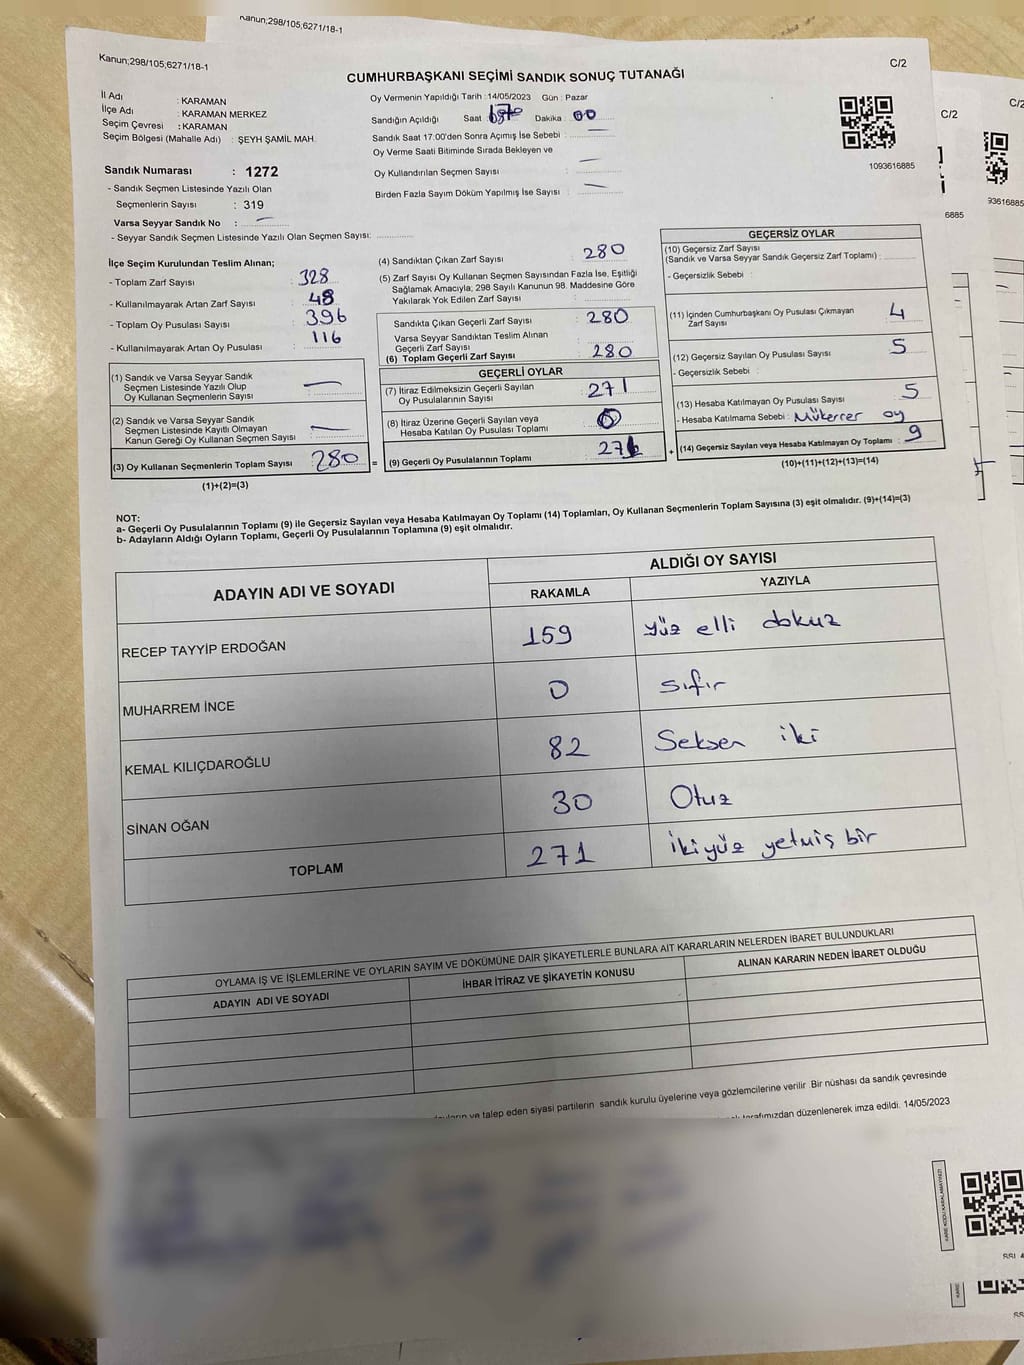 Kanun;298/105;6271/18-1
Kanun;298/105;6271/18-1
C/2
CUMHURBAŞKANI SEÇİMİ SANDIK SONUÇ TUTANAĞI
İl Adı : KARAMAN
İlçe Adı : KARAMAN MERKEZ
Seçim Çevresi : KARAMAN
Seçim Bölgesi (Mahalle Adı) : ŞEYH ŞAMİL MAH.
Sandık Numarası : 1272
- Sandık Seçmen Listesinde Yazılı Olan
Seçmenlerin Sayısı : 319
Varsa Seyyar Sandık No : —
- Seyyar Sandık Seçmen Listesinde Yazılı Olan Seçmen Sayısı:
Oy Vermenin Yapıldığı Tarih :14/05/2023 Gün : Pazar
Sandığın Açıldığı Saat Dakika : 00
Sandık Saat 17:00'den Sonra Açımış İse Sebebi : —
Oy Verme Saati Bitiminde Sırada Bekleyen ve
Oy Kullandırılan Seçmen Sayısı : —
Birden Fazla Sayım Döküm Yapılmış İse Sayısı : —
1093616885
İlçe Seçim Kurulundan Teslim Alınan;
- Toplam Zarf Sayısı : 328
- Kullanılmayarak Artan Zarf Sayısı : 48
- Toplam Oy Pusulası Sayısı : 396
- Kullanılmayarak Artan Oy Pusulası : 116
(1) Sandık ve Varsa Seyyar Sandık
Seçmen Listesinde Yazılı Olup
Oy Kullanan Seçmenlerin Sayısı : —
(2) Sandık ve Varsa Seyyar Sandık
Seçmen Listesinde Kayıtlı Olmayan
Kanun Gereği Oy Kullanan Seçmen Sayısı : —
(3) Oy Kullanan Seçmenlerin Toplam Sayısı 280
(1)+(2)=(3)
(4) Sandıktan Çıkan Zarf Sayısı : 280
(5) Zarf Sayısı Oy Kullanan Seçmen Sayısından Fazla İse, Eşitliği
Sağlamak Amacıyla; 298 Sayılı Kanunun 98. Maddesine Göre
Yakılarak Yok Edilen Zarf Sayısı :
Sandıkta Çıkan Geçerli Zarf Sayısı : 280
Varsa Seyyar Sandıktan Teslim Alınan
Geçerli Zarf Sayısı :
(6) Toplam Geçerli Zarf Sayısı : 280
GEÇERLİ OYLAR
(7) İtiraz Edilmeksizin Geçerli Sayılan
Oy Pusulasının Sayısı : 271
(8) İtiraz Üzerine Geçerli Sayılan veya
Hesaba Katılan Oy Pusulası Toplamı : 0
= (9) Geçerli Oy Pusulalarının Toplamı : 271
GEÇERSİZ OYLAR
(10) Geçersiz Zarf Sayısı
(Sandık ve Varsa Seyyar Sandık Geçersiz Zarf Toplamı) :
- Geçersizlik Sebebi :
(11) İçinden Cumhurbaşkanı Oy Pusulası Çıkmayan
Zarf Sayısı : 4
(12) Geçersiz Sayılan Oy Pusulası Sayısı : 5
- Geçersizlik Sebebi :
(13) Hesaba Katılmayan Oy Pusulası Sayısı : 5
- Hesaba Katılmama Sebebi : Mükerrer oy
+ (14) Geçersiz Sayılan veya Hesaba Katılmayan Oy Toplamı : 9
(10)+(11)+(12)+(13)=(14)
NOT:
a- Geçerli Oy Pusulalarının Toplamı (9) ile Geçersiz Sayılan veya Hesaba Katılmayan Oy Toplamı (14) Toplamları, Oy Kullanan Seçmenlerin Toplam Sayısına (3) eşit olmalıdır. (9)+(14)=(3)
b- Adayların Aldığı Oyların Toplamı, Geçerli Oy Pusulalarının Toplamına (9) eşit olmalıdır.
ADAYIN ADI VE SOYADI
ALDIĞI OY SAYISI
RAKAMLA YAZIYLA
RECEP TAYYİP ERDOĞAN 159 yüz elli dokuz
MUHARREM İNCE 0 sıfır
KEMAL KILIÇDAROĞLU 82 Seksen iki
SİNAN OĞAN 30 Otuz
TOPLAM 271 ikiyüz yetmiş bir
OYLAMA İŞ VE İŞLEMLERİNE VE OYLARIN SAYIM VE DÖKÜMÜNE DAİR ŞİKAYETLERLE BUNLARA AİT KARARLARIN NELERDEN İBARET BULUNDUKLARI
ADAYIN ADI VE SOYADI İHBAR İTİRAZ VE ŞİKAYETİN KONUSU ALINAN KARARIN NEDEN İBARET OLDUĞU
ve talep eden siyasi partilerin sandık kurulu üyelerine veya gözlemcilerine verilir. Bir nüshası da sandık çevresinde
tarafımızdan düzenlenerek imza edildi. 14/05/2023
C/2
6885
C/2
93616885
KARE KODU KARALAMAYINIZ!